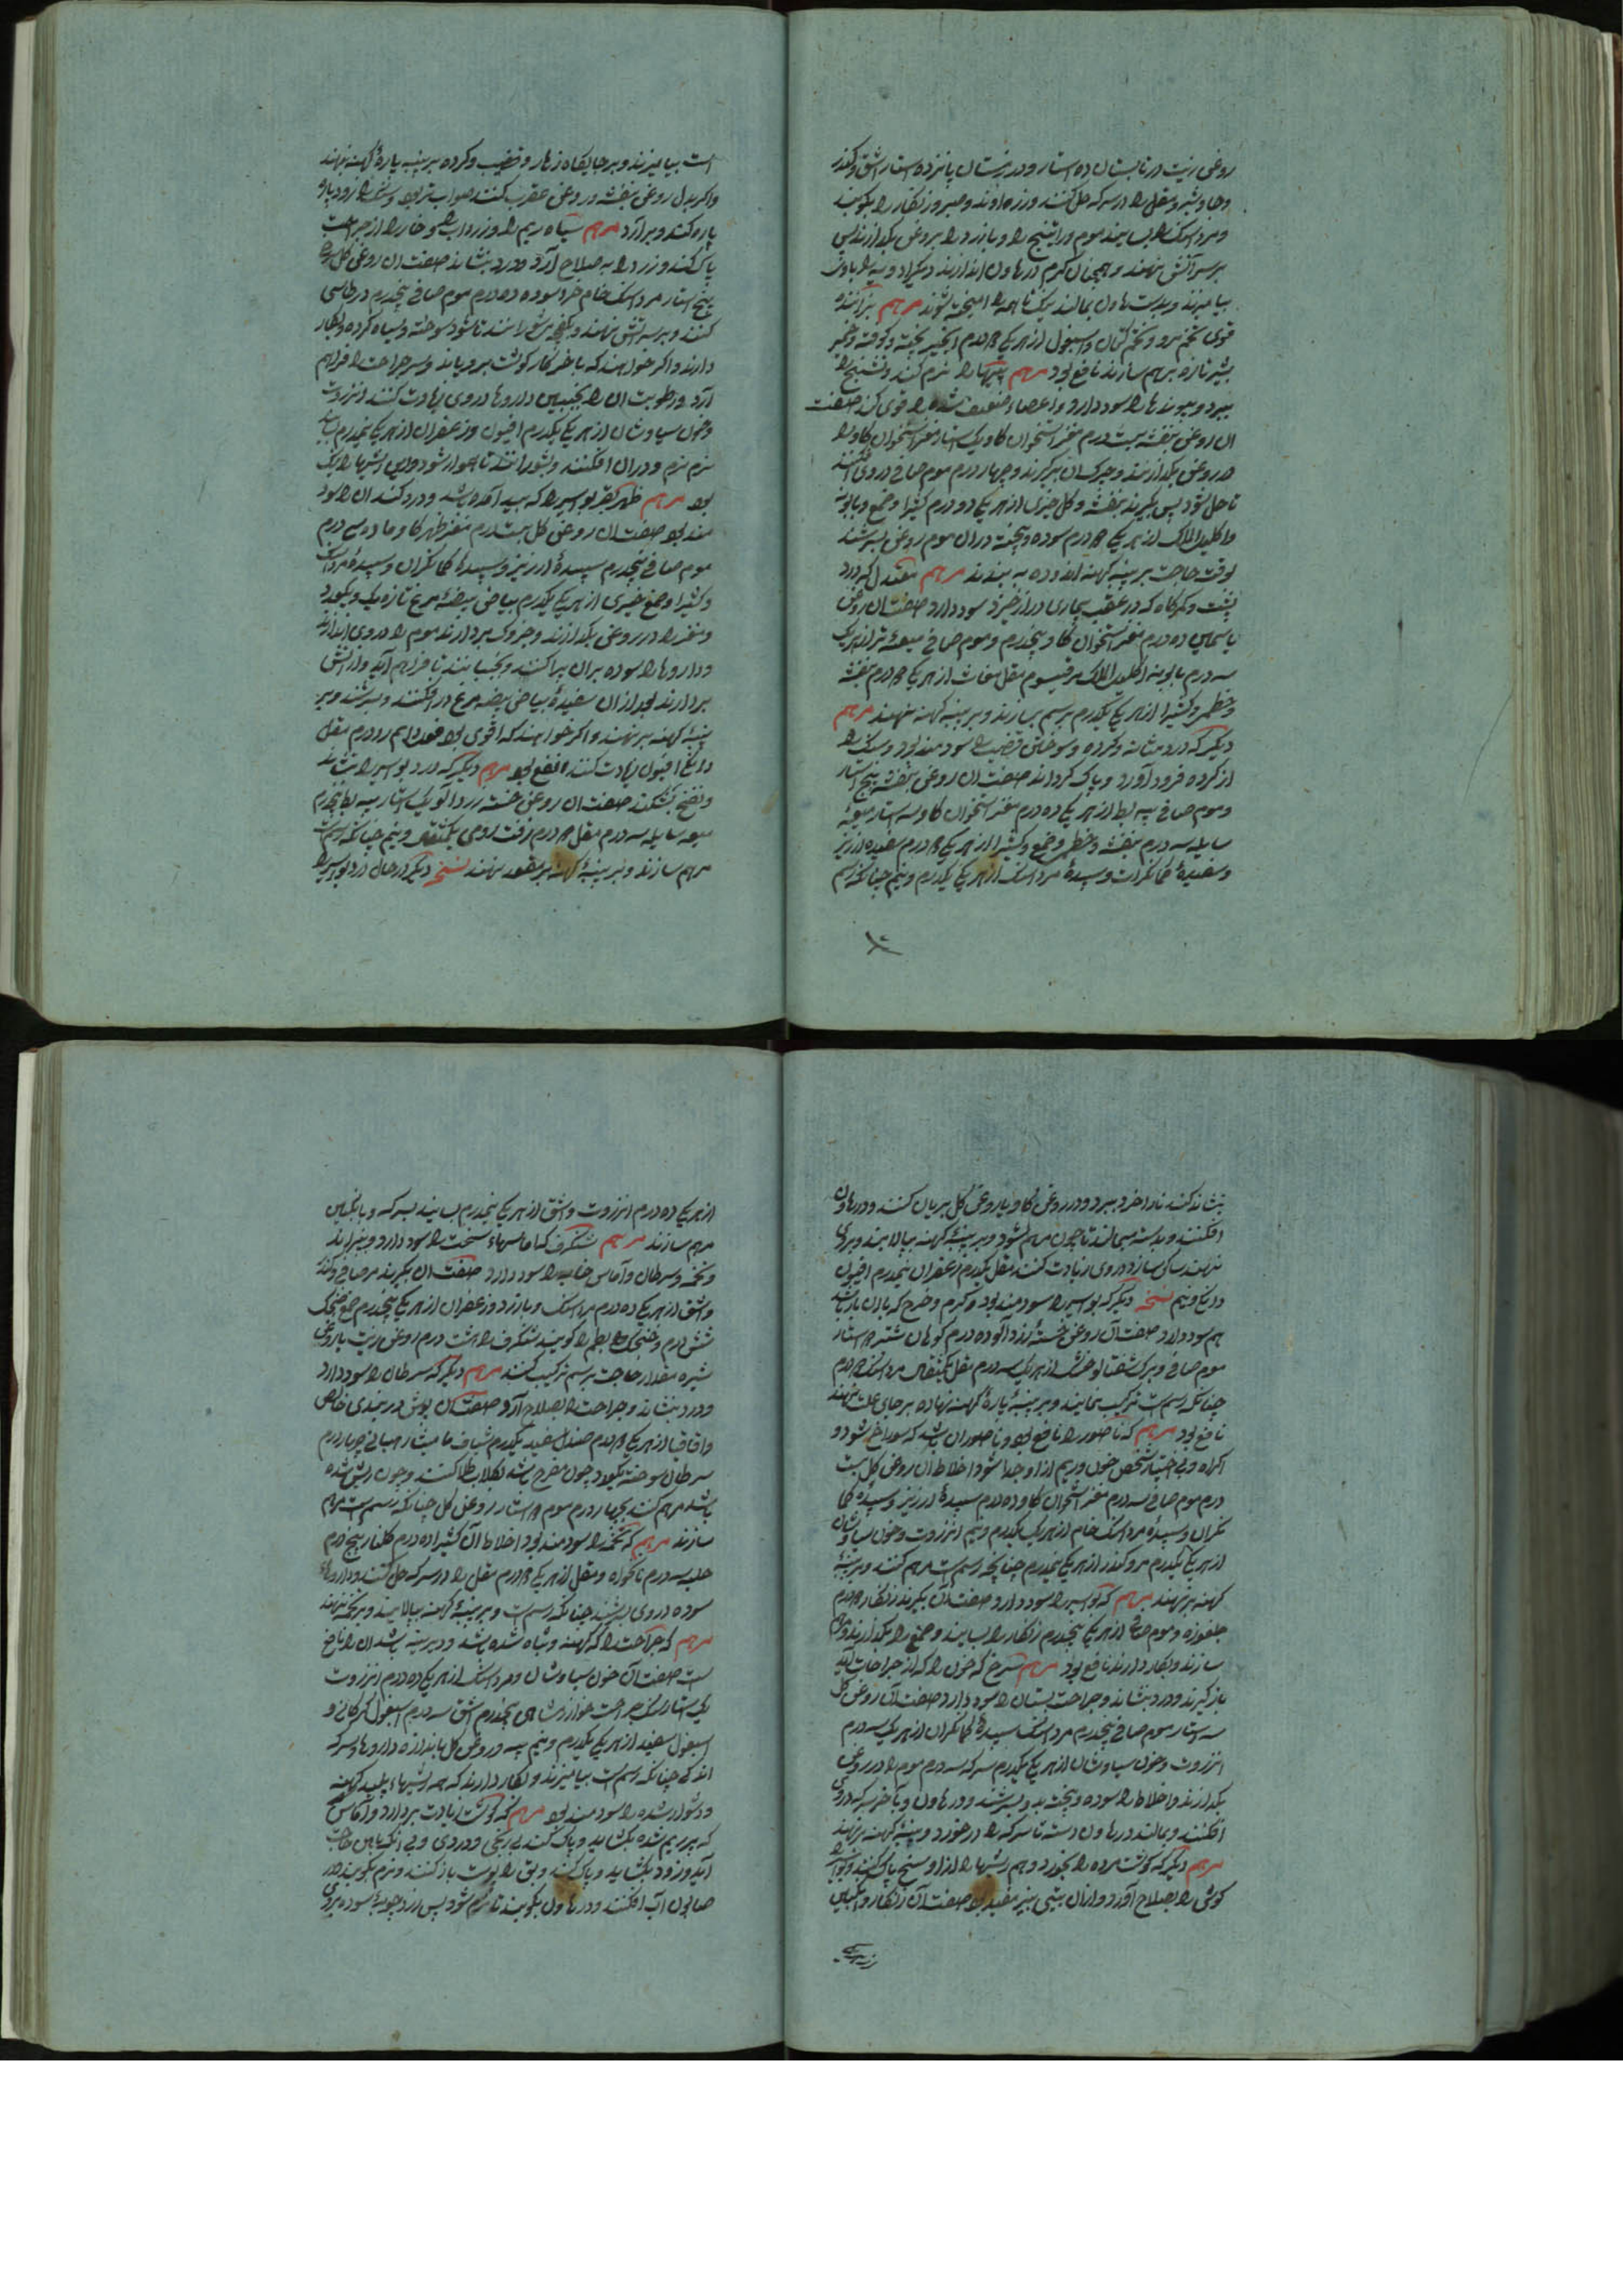 روغن زیت در تابستان ده استار و در زمستان پانزده استار اشق و کندر
و جاوشیر و مقل را در سرکه حل کنند و زراوند و صبر و زنگار را بکوبند
و مرداسنگ را بسایند موم و راتینج را و بارزد را بروغن بگدازند پس
بر سر آتش نهند و همچنان گرم در هاون اندازند و دیگر ادویه را با وی
بیامیزند و بدست هاون بمالند نیک تا همه آمیخته شوند مرهم بزاننده
قوی تخم مرو و تخم کتان و اسبغول از هر یکی درم انجیر پخته و کوفته و خمیر
بشیر تازه مرهم سازند نافع بود مرهم پیها را نرم کند و تشنج را
ببرد و پیوندها را سود دارد و اعضاء ضعیف شده را قوی کند صفت
آن روغن بنفشه بیست درم مغز استخوان گاو یک استار مغز استخوان گاو را
در روغن بگدازند و چرک آن برگیرند و چهار درم موم صافی در وی افکنند
تا حل شود پس بگیرند بنفشه و گل خیری از هر یکی دو درم کتیرا و صمغ و بابونه
و اکلیل الملک از هر یکی درم سوده و پخته در آن موم روغن بسرشند
بوقت حاجت بر پنبه کهنه اندوده به بندند مرهم معتدل که درد
پشت و کمرگاه که در عقب بیماری دراز خیزد سود دارد صفت آن روغن
یاسمین ده درم مغز استخوان گاو پنجدرم و موم صافی میعهٔ تر از هر یک
سه درم بابونه اکلیل الملک برقیسوم مقل بغاث از هر یکی درم بنفشه
و خطمی و کتیرا از هر یکی یکدرم برسم بسازند و بر پنبه کهنه نهند مرهم
دیگر که درد مثانه و گرده و سوختن قضیب را سودمند بود و سنگ را
از گرده فرود آورد و پاک گرداند صفت آن روغن بنفشه پنج استار
و موم صافی پیه بط از هر یکی ده درم مغز استخوان گاو سه استار میعهٔ
سایله سه درم بنفشه و خطمی و صمغ و کتیرا از هر یکی درم سفیده ارزیز
و سفیدهٔ کمانگران و سپیدهٔ مرداسنگ از هر یکی یکدرم و نیم چنانکه رسم
است بیامیزند و بر جایگاه زهار و قضیب و گرده بر پنبه پارهٔ کهنه نهند
و اگر بدل روغن بنفشه روغن عقرب کنند صواب تر بود و سنگ را زود پاره
پاره کند و برآرد مرهم سیاه ریم را و زرداب را و خار را از جراحت
پاک کند و زود را به صلاح آرد و درد بنشاند صفت آن روغن گل سرخ
پنج استار مرداسنگ خام خرد سوده ده درم موم صافی پنجدرم در طاسی
کنند و بر سر آتش نهند و بکفچه بشورانند تا شود سوخته و سیاه کرده و بکار
دارند و اگر خواهند که باخر کار گوشت برویاند و سر جراحت را فراهم
آرد و رطوبت آن را بچیند این داروها در وی زیادت کنند انزروت
و خون سیاوشان از هر یکی یکدرم افیون و زعفران از هر یکی نیمدرم بسایند
نرم نرم و در آن افکنند و بشورانند تا هموار شود و این ریشها را نیک
بود مرهم ظهر کفر بواسیر را که پیدا آمده باشد و درد کند آن را سود
مند بود صفت آن روغن گل بیست درم مغز ظهر گاو ماده سه درم
موم صافی پنجدرم سپیدهٔ ارزیز و سپیدهٔ کمانگران و سپیدهٔ مرداسنگ
و کتیرا و صمغ خیری از هر یکی یکدرم بیاض بیضهٔ مرغ تازه یک و یکعدد
و مغز را در روغن بگدازند و چرک بردارند موم را در وی اندازند
و داروها را سوده بر آن پراکنند و بجنبانند تا فراهم آید و از آتش
بردارند بعد از آن سفیدهٔ بیاض بیضه مرغ درافکنند و بسرشند و بر
پنبهٔ کهنه بر نهند و اگر خواهند که اقوی بود فود دایم رو درم مقل
دانگی افیون زیادت کنند انفع بود مرهم دیگر که درد بواسیر را بنشاند
و نفخ بشکند صفت آن روغن خسته زردآلو یک استار پیه بط پنجدرم
میعه سایله سه درم مقل درم زفت رومی یکمثقال و نیم چنانکه رسم است
مرهم سازند و بر پنبهٔ کهنه بر مقعد نهند نسخه دیگر در حال درد بواسیر را
بنشاند کندنا را خرد ببرد و در روغن گاو یا روغن گل بریان کنند و در هاون
افکنند و بدسته میمالند تا چون مرهم شود و بر پنبهٔ کهنه بپالایند و بر وی
نهند ساکن سازد در وی زیادت کنند مقل یکدرم زعفران نیمدرم افیون
دانگ و نیم نسخه دیگر که بواسیر را سودمند بود و کرم و خرج که با آن یار باشد
هم سود دارد صفت آن روغن خستهٔ زردآلو ده درم کوهان شتر استار
موم صافی و برگ شفتالو خشک از هر یک سه درم مقل یکمثقال مرداسنگ درم
چنانکه رسم است ترکیب نمایند و بر پنبهٔ پارهٔ کهنه نهاده بر جای علت نهند
نافع بود مرهم که ناصور را نافع بود و ناصور آن باشد که سوراخ شود و
اکراه و بی اختیار شخص خون و ریم از او جدا شود اخلاط آن روغن گل بیست
درم موم صافی سه درم مغز استخوان گاو ده درم سپیدهٔ ارزیز و سپیدهٔ کما
نگران و سپیدهٔ مرداسنگ خام از هر یک یکدرم و نیم انزروت و خون سیاوشان
از هر یکی یکدرم مر و کندر از هر یکی نیمدرم چنانچه رسم است مرهم کنند و بر پنبهٔ
کهنه بر نهند مرهم که بواسیر را سود دارد صفت آن بگیرند زنگار درم
جلغوزه و موم صافی از هر یکی پنجدرم زنگار را بسایند و صمغ را بگدازند و مرهم
سازند و بکار دارند نافع بود مرهم سرخ که خون را که از جراحات آید
باز گیرند و درد بنشاند و جراحت پستان را سود دارد صفت آن روغن گل
سه استار موم صافی پنجدرم مرداسنگ سپیدهٔ کمانگران از هر یک سه درم
انزروت و خون سیاوشان از هر یکی یکدرم سرکه سه درم موم را در روغن
بگدازند و اخلاط را سوده و پخته بدو بسرشند و در هاون و بآخر سرکه در وی
افکنند و بمالند در هاون دسته تا سرکه را در خورد و پنبهٔ کهنه بر نهند
مرهم دیگر که گوشت مرده را بخورد و هم ریشها را از او سخ پاک کنند و بواسیر
گوشی را بصلاح آورد و از آن بینی نیز مفید بود صفت آن زنگار و انگبین
از هر یکی ده درم انزروت و اشق از هر یکی نیمدرم بسایند بسرکه و با انگبین
مرهم سازند مرهم شنگرف کاماسهاء سخت را سود دارد و بپزاند
و تخمه و سرطان و آماس خایه را سود دارد صفت آن بگیرند مر صافی و کندر
و اشق از هر یکی ده درم مرداسنگ و بارزد و زعفران از هر یکی پنجدرم صمغ ضجک
شش درم و ضجک بطم را گویند شنگرف را هشت درم روغن زیت یا روغن
شیره مقدار حاجت برسم ترکیب کنند مرهم دیگر که سرطان را سود دارد
و درد بنشاند و جراحت را بصلاح آرد صفت آن بوش دربندی خالص
و اقاقیا از هر یکی درم صندل سفید یکدرم شیاف مامیثا رهبانی چهار درم
سرطان سوخته یکعدد چون مقرح باشد بگلاب طلا کنند و چون ریش شده
باشد مرهم کنند بچهار درم موم استار روغن گل چنانکه رسم است مرهم
سازند مرهم که تخمه را سودمند بود اخلاط آن کتیرا ده درم گلنار پنج درم
حلبه سه درم نانخواه و مقل از هر یکی درم مقل را در سرکه حل کنند و داروهاء
سوده در وی بسرشند چنانکه رسم است و بر پنبهٔ کهنه بپالایند و بر تخمه نهند
مرهم که جراحت را که کهنه و تباه شده باشد و دیرینه باشد آن را نافع
است صفت آن خون سیاوشان و مرداسنگ از هر یکی ده درم انزروت
یک استار سنگ جراحت خوازرشاهی پنجدرم اشق سه درم اسبغول گرگانی و
اسبغول سفید از هر یکی یکدرم و نیم پیه و روغن گل باندازه داروها و سرکه
اندکی چنانکه رسم است بیامیزند و بکار دارند که همه ریشهاء پلید کهنه
و دشوار شده را سودمند بود مرهم که گوشت زیادت بردارد و آماس
که پر ریم شده بگشاید و پاک کند بی رنجی و دردی و بی آنکه بآهن حاجت
آید و زود بگشاید و پاک کند و بق را پوست باز کنند و نرم بکوبند در
صابون آب افکنند و در هاون بکوبند تا نرم شود پس ارزه چوبهٔ سوده بر وی
از هر یکی